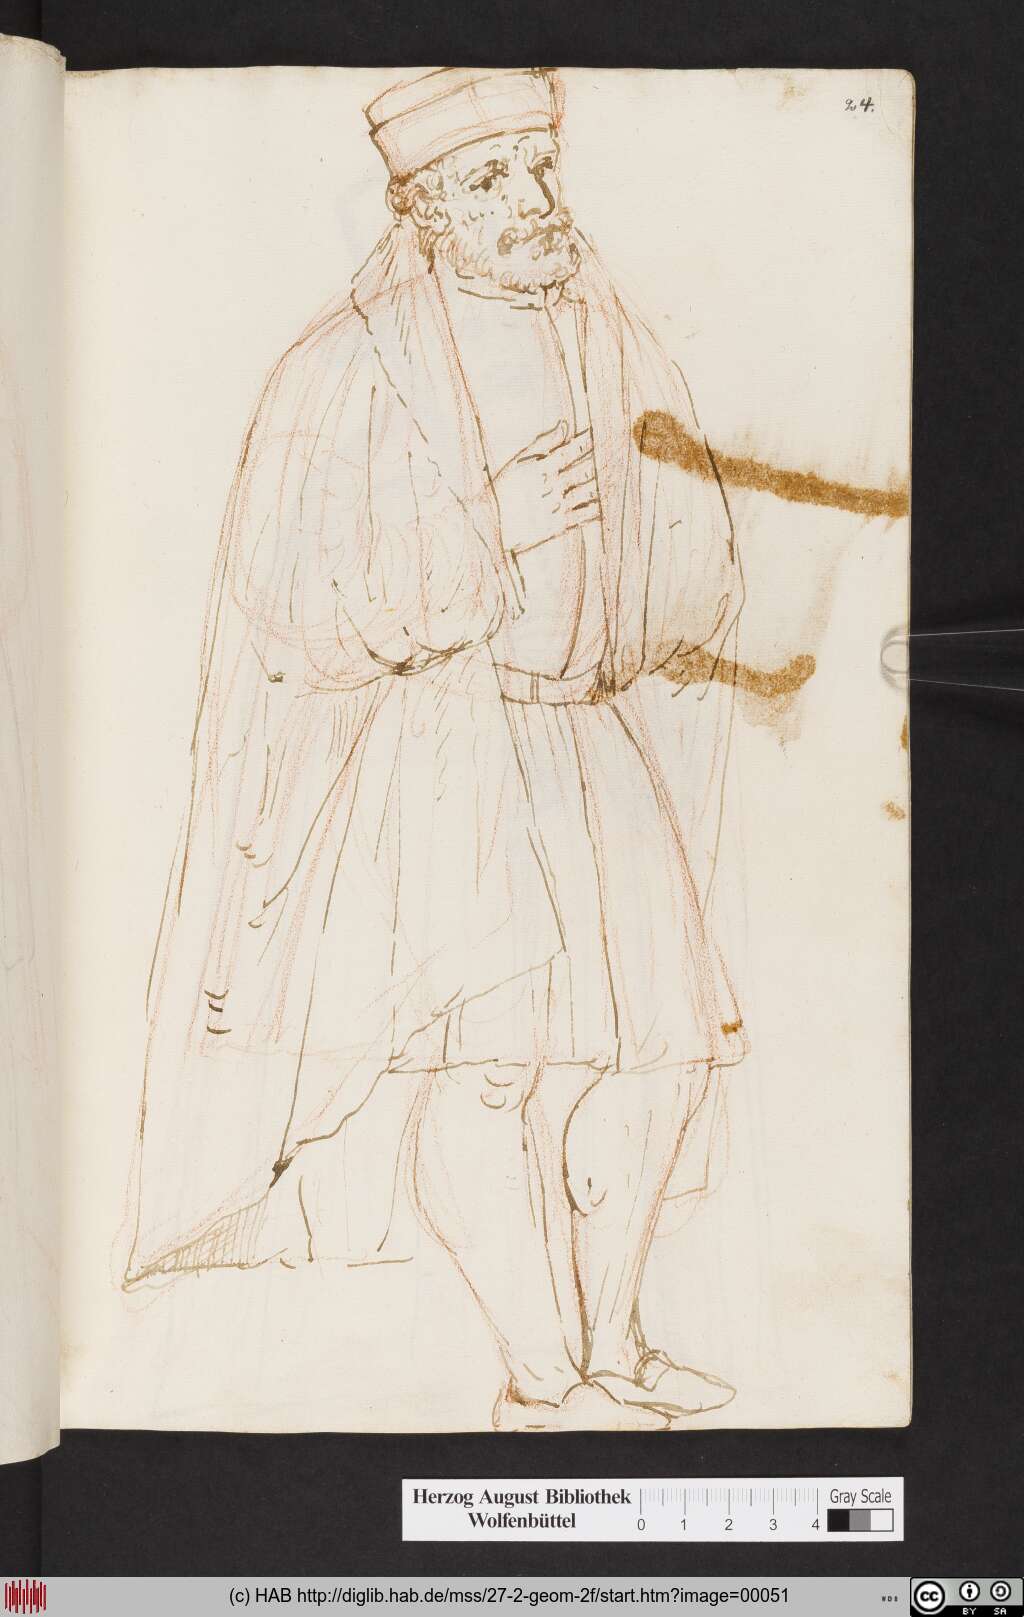 24.
Herzog August Bibliothek
Wolfenbüttel
0 1 2 3 4
Gray Scale
(c) HAB http://diglib.hab.de/mss/27-2-geom-2f/start.htm?image=00051
cc
BY SA